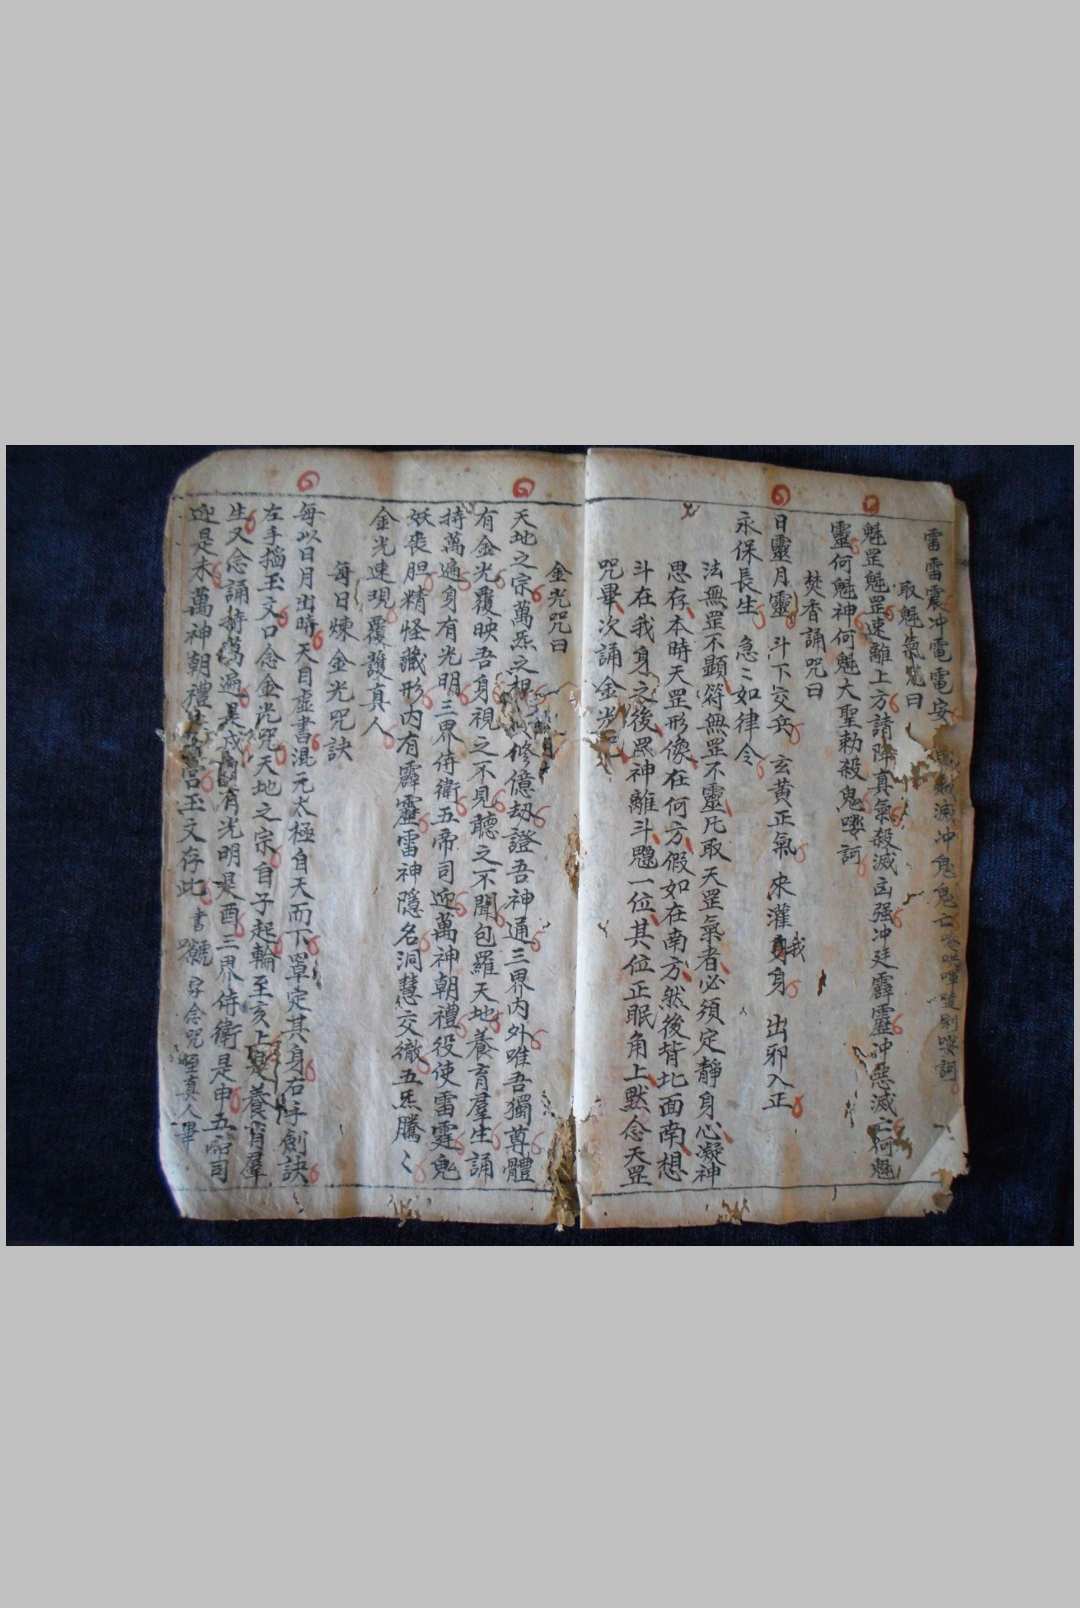 雷雷震冲電電安 滅冲鬼鬼亡
取魁氣咒曰
魁罡魁罡速離上方請降真氣殺滅凶强冲廷霹靂冲惡滅亡何魁
靈何魁神何魁大聖勅殺鬼嘤訶
焚香誦咒曰
日靈月靈 斗下交兵 玄黃正氣 來灌我身 出卯入正
永保長生 急〻如律令
法無罡不顯符無罡不靈凡取天罡氣者必須定靜身心凝神
思存本時天罡形像在何方假如在南方然後背北面南想
斗在我身之後眾神離斗魁一位其位正眠角上默念天罡
咒畢次誦金光咒
金光咒曰
天地之宗萬炁之根 修億劫證吾神通三界內外唯吾獨尊體
有金光覆映吾身視之不見聽之不聞包羅天地養育羣生誦
持萬遍身有光明三界侍衛五帝司迎萬神朝禮役使雷霆鬼
妖喪胆精怪藏形內有霹靂雷神隱名洞慧交徹五炁騰〻
金光速現覆護真人
每日煉金光咒訣
每以日月出時天目虛書混元太極自天而下罩定其身右手劍訣
左手掐玉文口念金光咒天地之宗自子起輪至亥上是養育羣
生又念誦持萬遍是戌 有光明是酉三界侍衛是申五帝司
迎是未萬神朝禮 玉文存此書 字念咒至真人畢